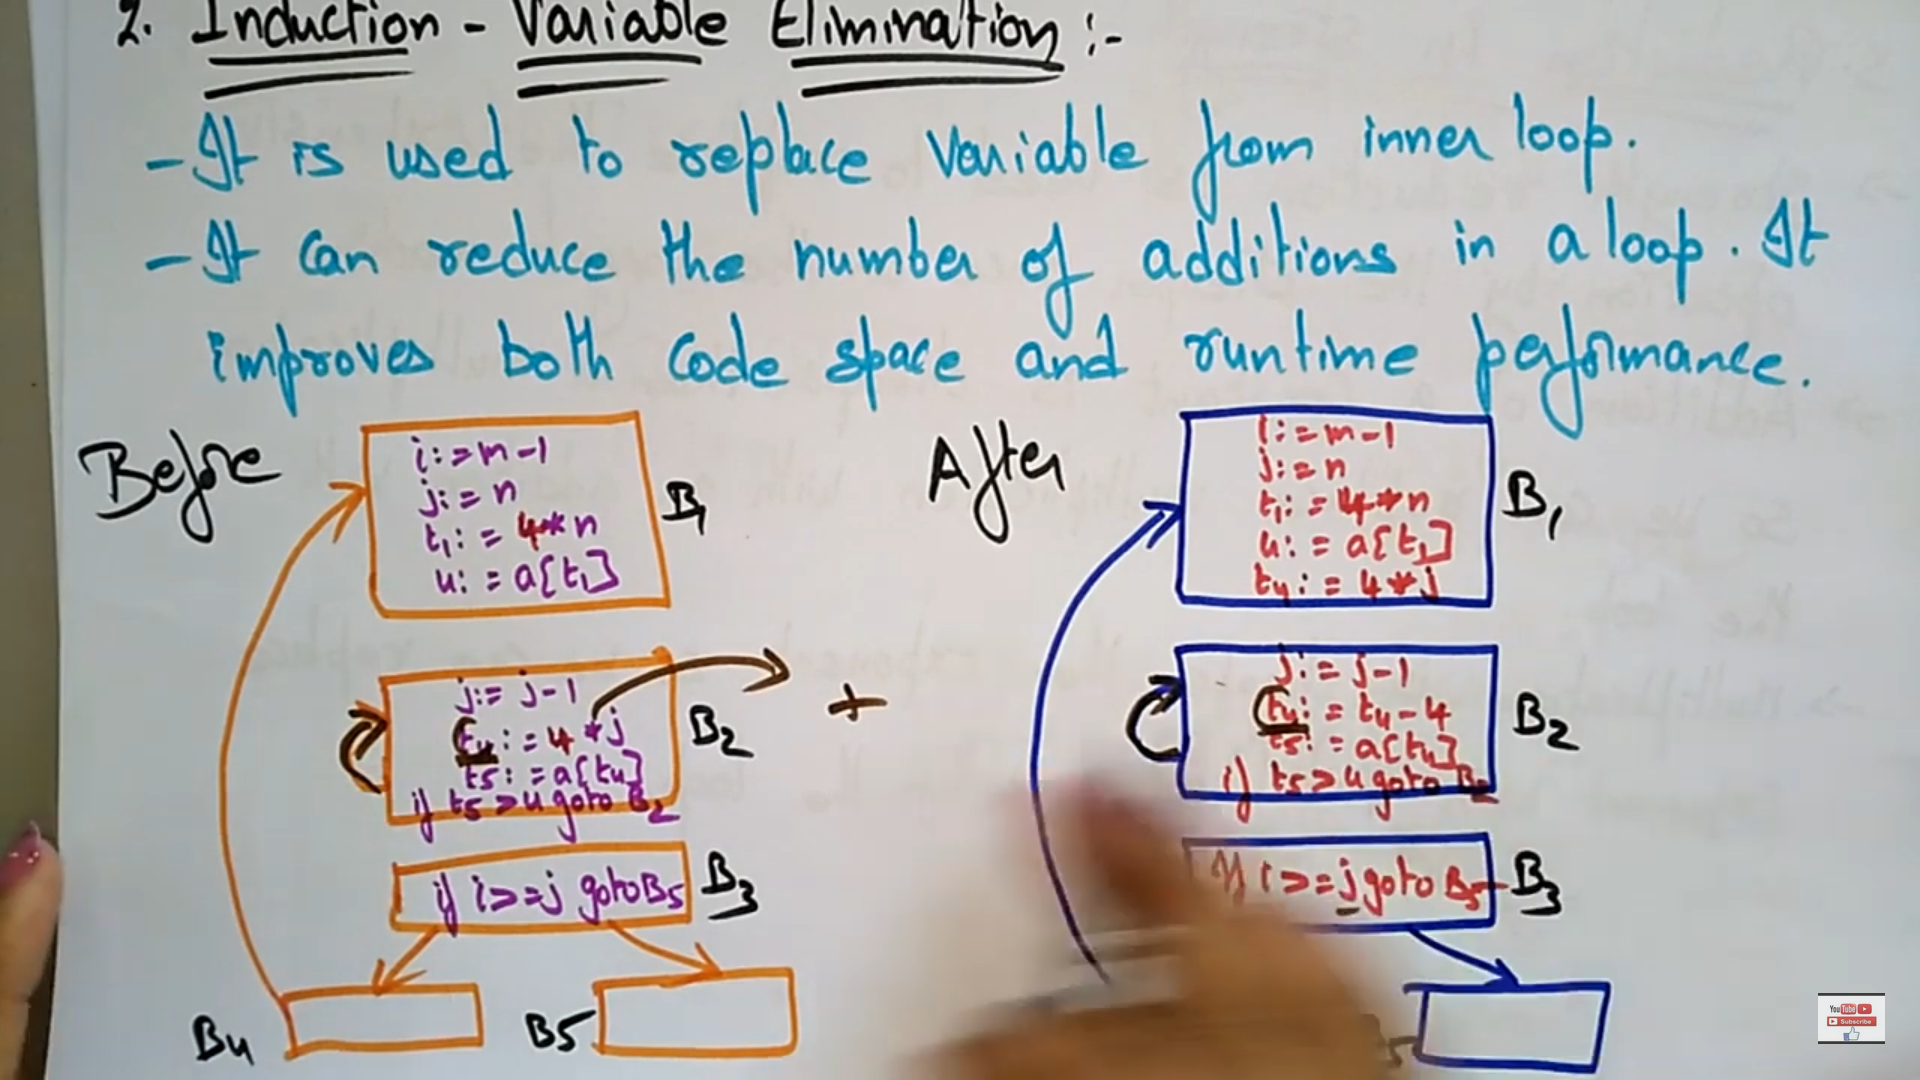 2. Induction - Variable Elimination :-
- It is used to replace variable from inner loop.
- It can reduce the number of additions in a loop. It
improves both code space and runtime performance.
Before
i := m-1
j := n
t1 := 4*n
u := a[t1]
B1
j := j-1
t4 := 4*j
t5 := a[t4]
if t5 > u goto B2
B2
+
if i >= j goto B5
B3
B4
B5
After
i := m-1
j := n
t1 := 4*n
u := a[t1]
t4 := 4*j
B1
j := j-1
t4 := t4-4
t5 := a[t4]
if t5 > u goto B2
B2
if i >= j goto B5
B3
YouTube
Subscribe